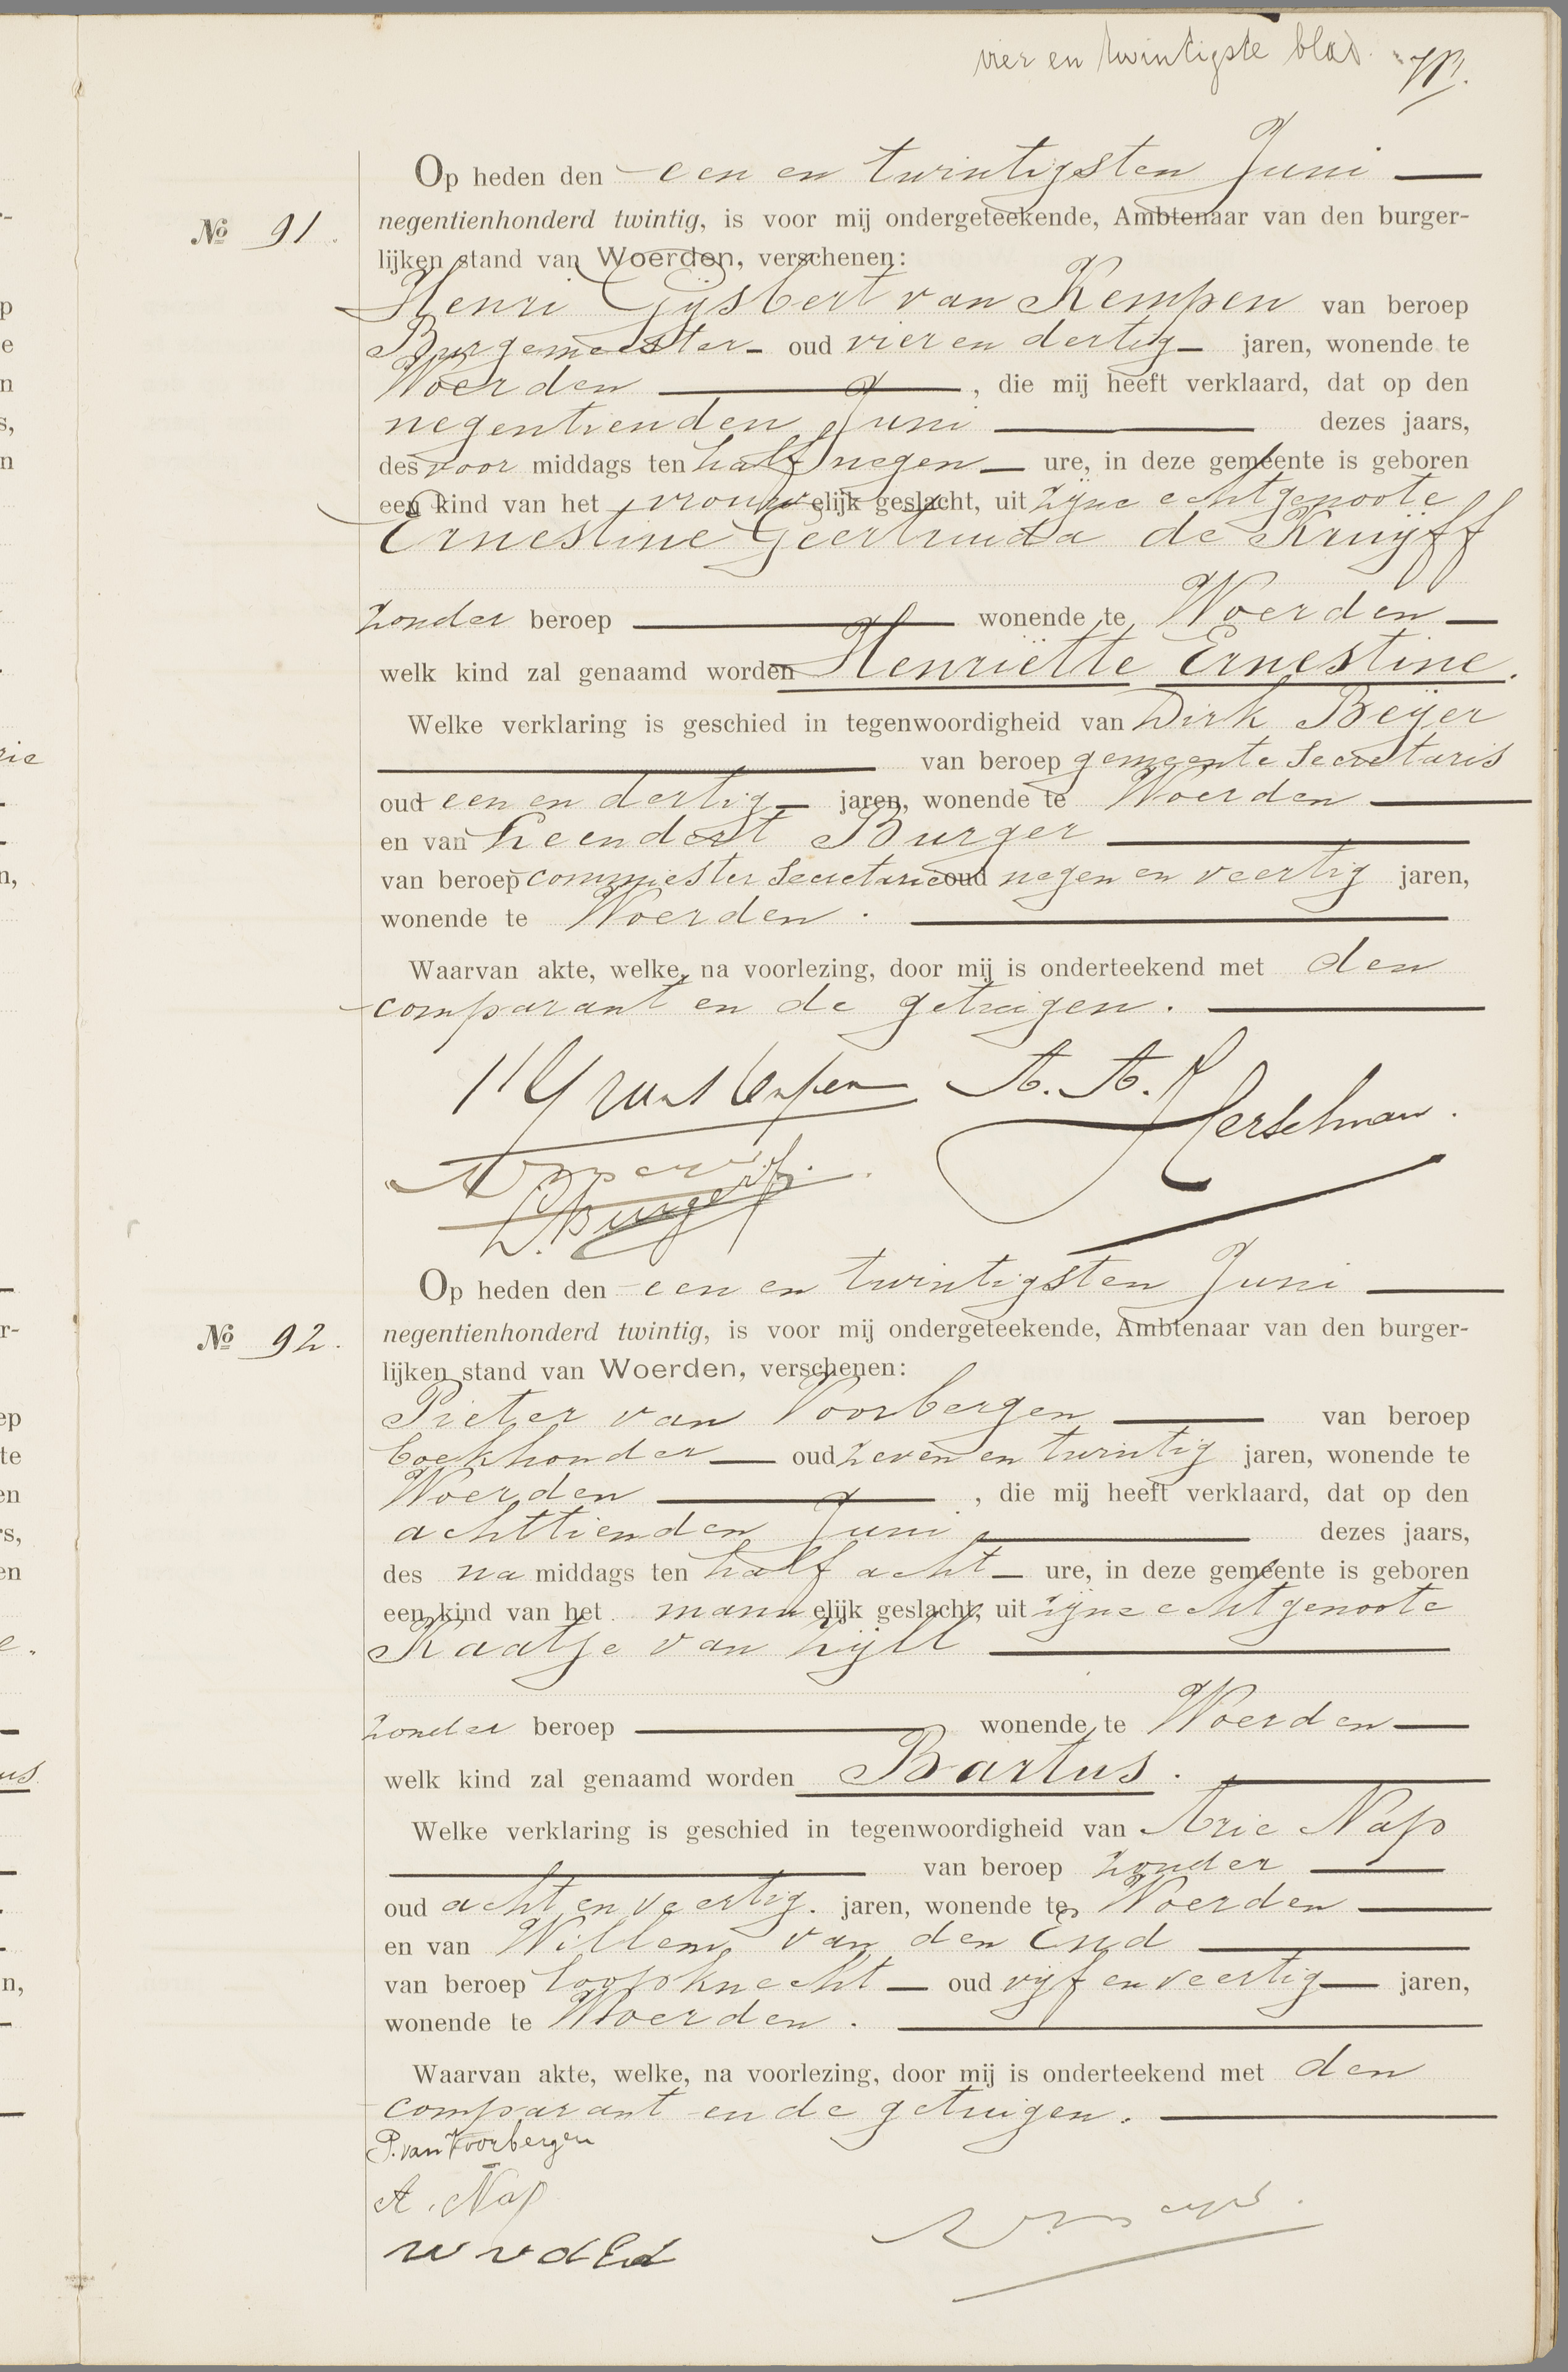 vier en twintigste blad.
Op heden den een en twintigsten Juni
No 91.
negentienhonderd twintig, is voor mij ondergeteekende, Ambtenaar van den burger-
lijken stand van Woerden, verschenen:
Henri Gijsbert van Kempen van beroep
Burgemeester oud vier en dertig jaren, wonende te
Woerden, die mij heeft verklaard, dat op den
negentienden Juni dezes jaars,
des voor middags ten half negen ure, in deze gemeente is geboren
een kind van het vrouwelijk geslacht, uit zijne echtgenoote
Ernestine Geertruida de Kruijff
zonder beroep wonende te Woerden
welk kind zal genaamd worden Henriëtte Ernestine.
Welke verklaring is geschied in tegenwoordigheid van Dirk Beijer
van beroep gemeente Secretaris
oud een en dertig jaren, wonende te Woerden
en van Leendert Burger
van beroep commies ter Secretarie oud negen en veertig jaren,
wonende te Woerden.
Waarvan akte, welke, na voorlezing, door mij is onderteekend met den
comparant en de getuigen.
HG van Kempen A. A. Kerselman.
L. Burger
Op heden den een en twintigsten Juni
No 92.
negentienhonderd twintig, is voor mij ondergeteekende, Ambtenaar van den burger-
lijken stand van Woerden, verschenen:
Pieter van Voorbergen van beroep
boekhouder oud zeven en twintig jaren, wonende te
Woerden, die mij heeft verklaard, dat op den
achttienden Juni dezes jaars,
des na middags ten half acht ure, in deze gemeente is geboren
een kind van het mannelijk geslacht, uit zijne echtgenoote
Kaatje van Zijll
zonder beroep wonende te Woerden
welk kind zal genaamd worden Bartus.
Welke verklaring is geschied in tegenwoordigheid van Arie Nap
van beroep zonder
oud acht en veertig. jaren, wonende te Woerden
en van Willem van den End
van beroep loopknecht oud vijf en veertig jaren,
wonende te Woerden.
Waarvan akte, welke, na voorlezing, door mij is onderteekend met den
comparant en de getuigen.
P. van Voorbergen
A. Nap
W v d End